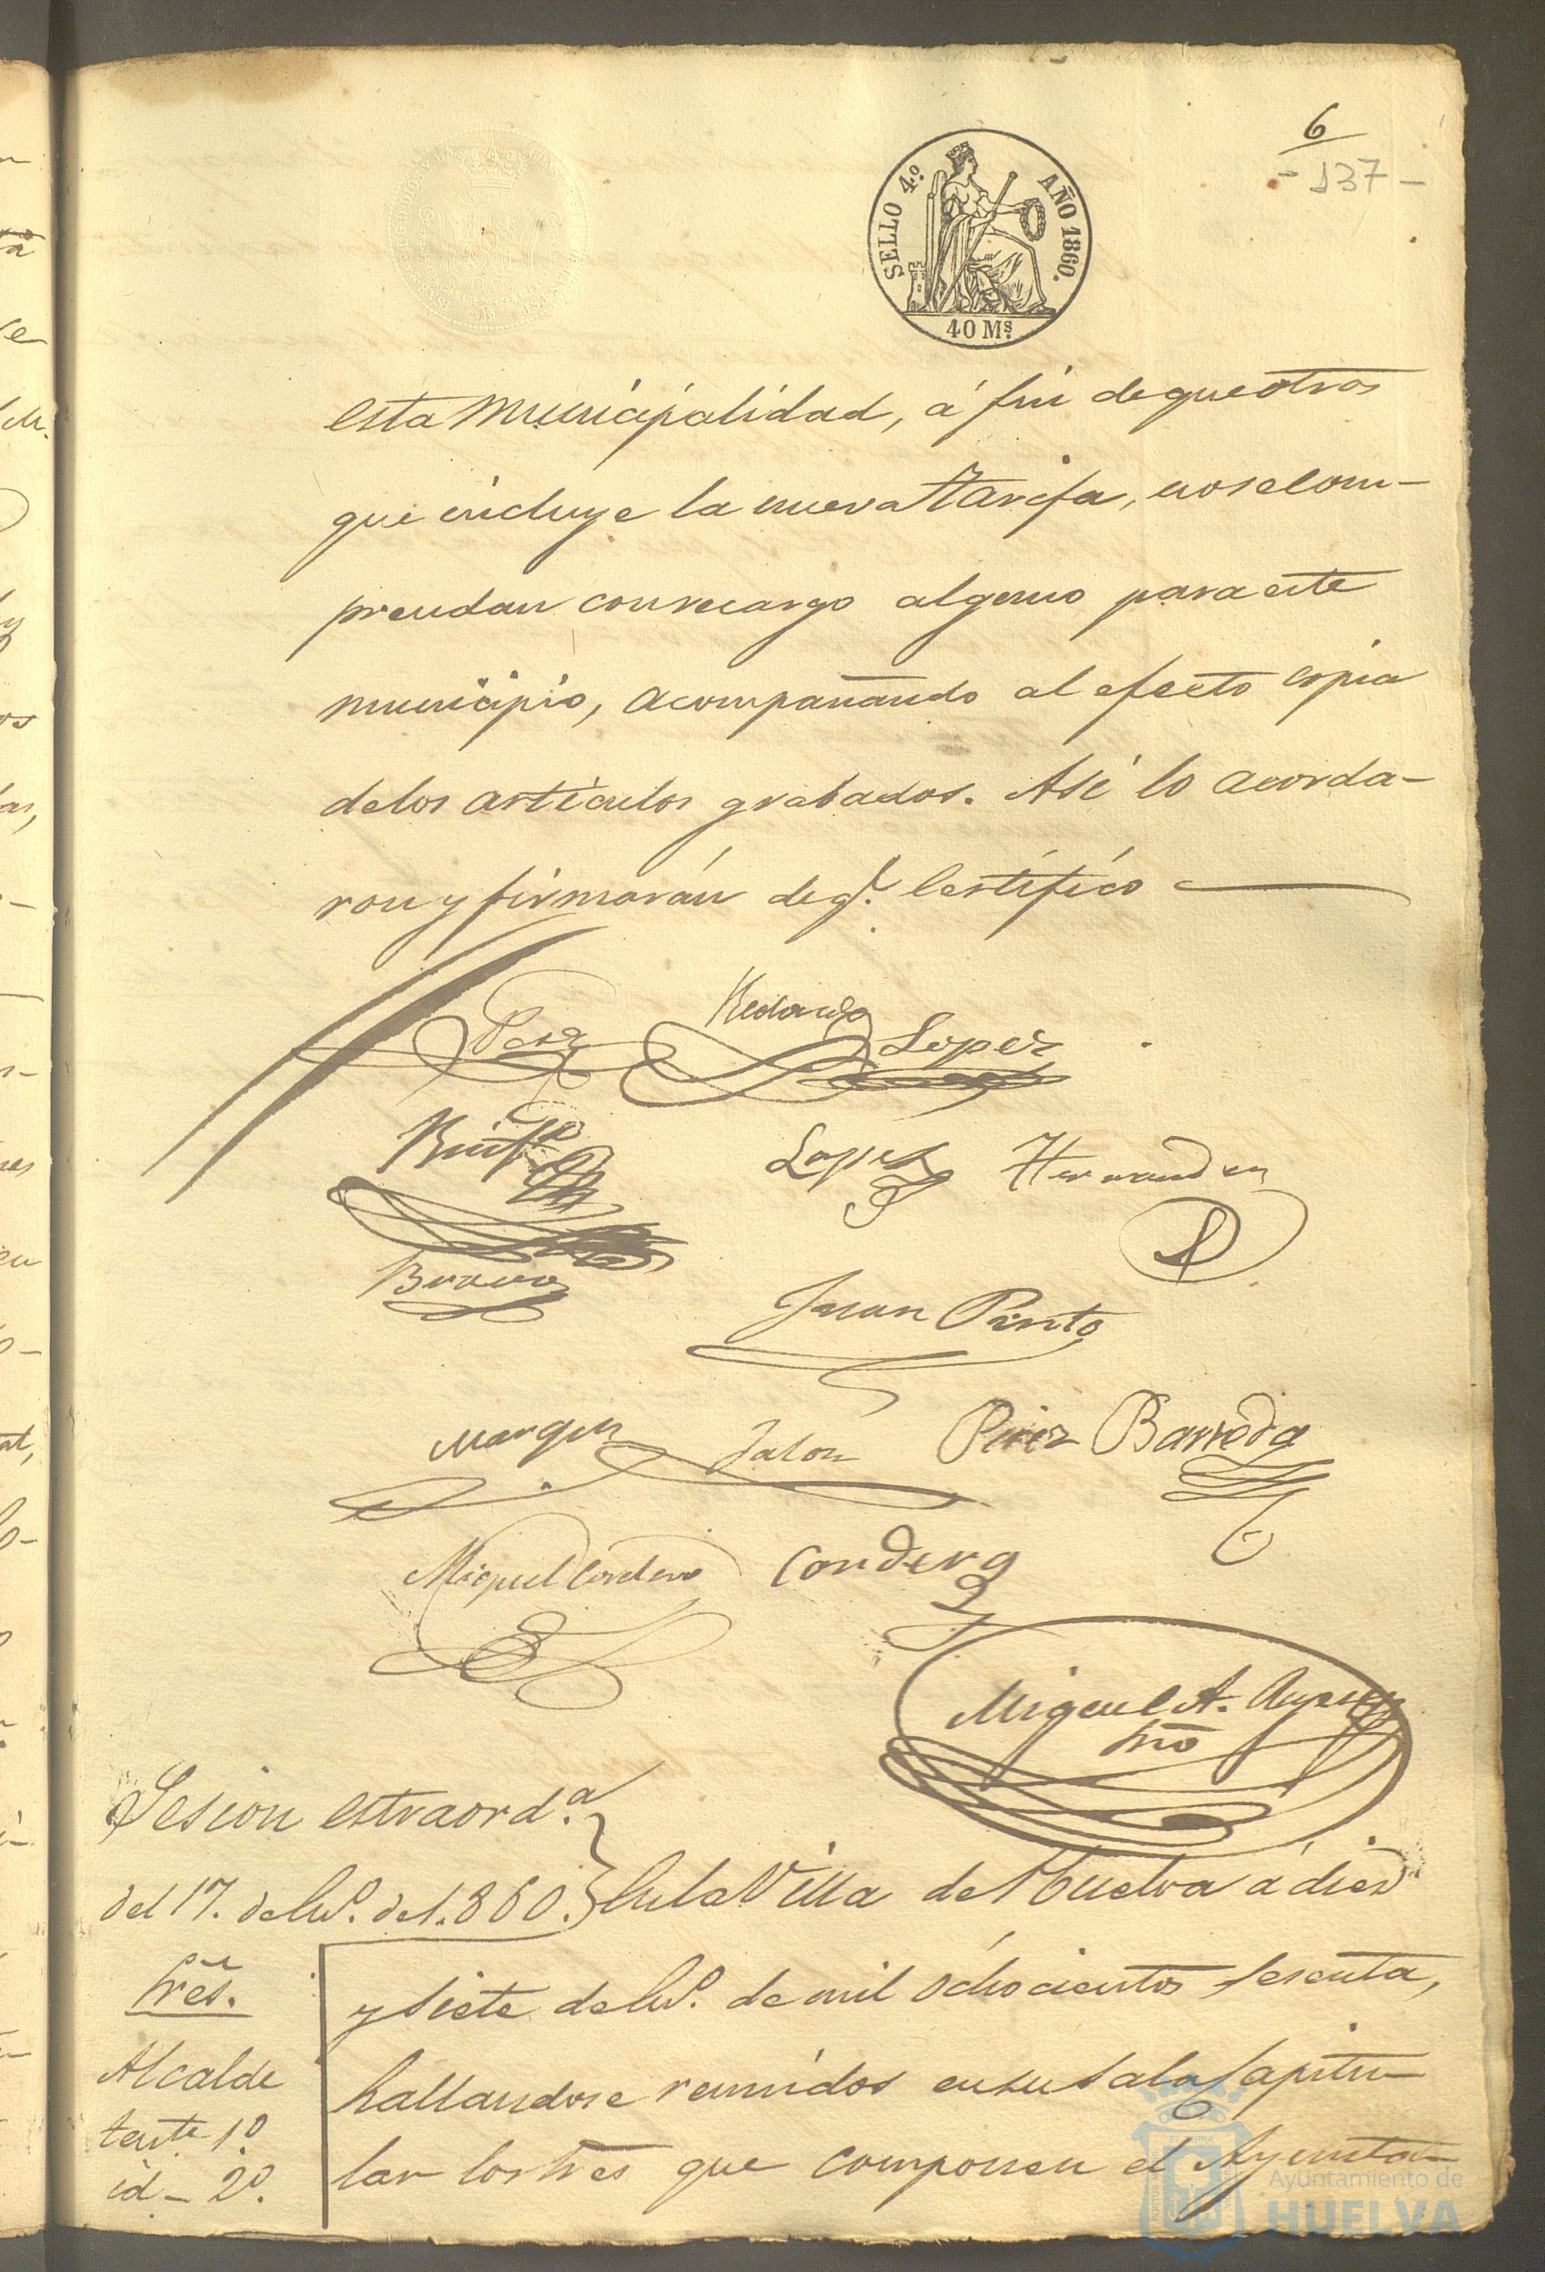 6
- 137 -
SELLO 4.º AÑO 1860.
40 Ms.
esta Municipalidad, á fin de que otros
que incluye la nueva Tarifa, no se com-
prendan con recargo alguno para este
municipio, acompañando al efecto copia
de los artículos grabados. Asi lo acorda-
ron y firmarán de q.e Certífico
Redondo
Lopez
Lopez Hernandez
Bravo
Juan Pinto
Marquez Jalon Perez Barreda
Miguel Cordero Cordero
Miguel A.
Srio
Sesion estraord.a
del 17. de En.o de 1.860. En la Villa de Huelva á diez
y siete de En.o de mil ochocientos sesenta,
Sres.
hallandose reunidos en su Sala Capitu-
Alcalde
tente 1.º
lar los Sres que componen el Ayunta-
id - 2.º
Ayuntamiento de
HUELVA